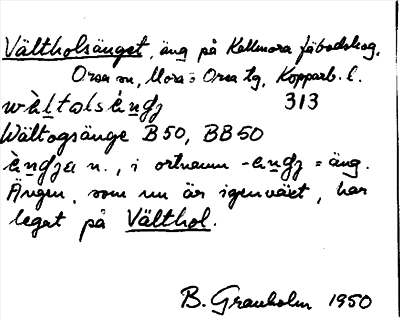 Vältholsänget, äng på Kallmora fäbodskog,
Orsa sn, Mora o Orsa tg, Kopparb. l.
wàltolsèngz 313
Wältogsänge B50, BB50
èngza n., i ortnamn -engz = äng.
Ängen, som nu är igenväxt, har
legat på Välthol.
B. Granholm 1950